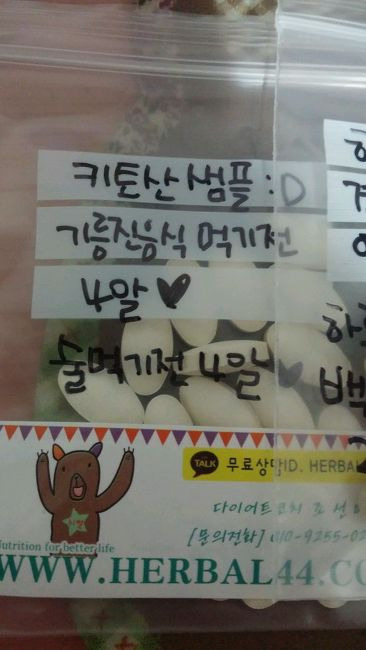 키토산 샘플 :D
기름진음식 먹기전
4알 ♥
술먹기전 4알 ♥
TALK 무료상담ID. HERBAL
다이어트코치 조
[문의전화] 010-9255-0
Nutrition for better life
WWW.HERBAL44.CO